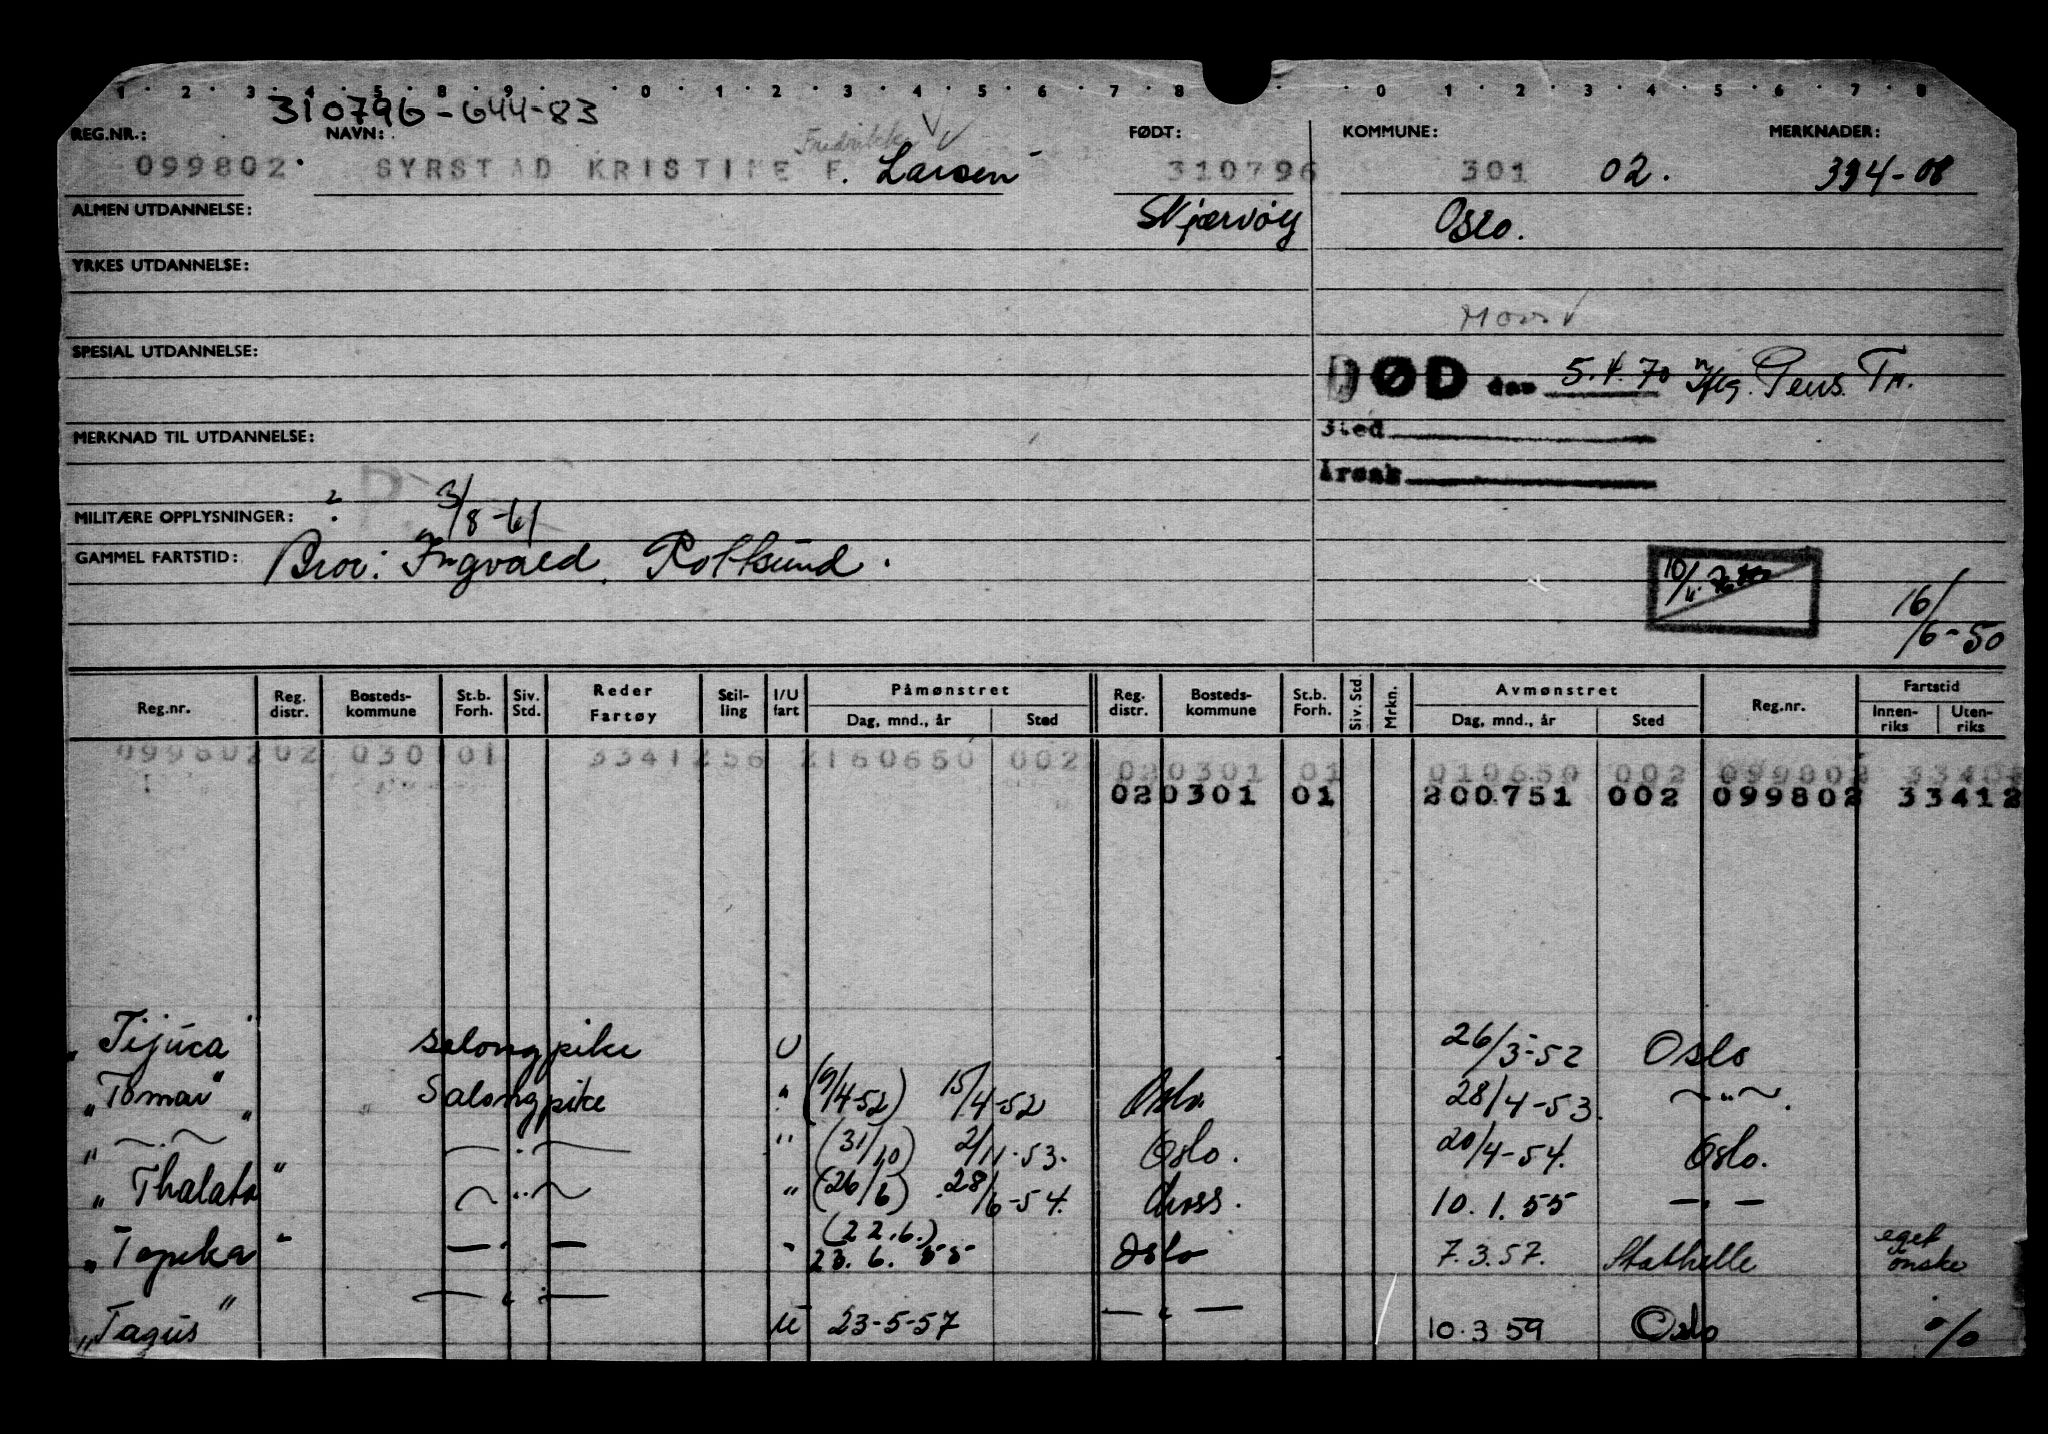 1 · 2 · 3 · 4 · 5 · 6 · 8 · 9 · 0 · 1 · 2 · 3 · 4 · 5 · 6 · 7 · 8 · 0 · 1 · 2 · 3 · 4 · 5 · 6 · 7 · 8
310796-644-83
REG.NR.: NAVN: FØDT: KOMMUNE: MERKNADER:
Fredrikke
099802 SYRSTAD KRISTINE F. Larsen 310796 301 02. 394-08
ALMEN UTDANNELSE: Skjervøy Oslo.
YRKES UTDANNELSE:
SPESIAL UTDANNELSE:
DØD den 5.4.70 Pens. Tr.
MERKNAD TIL UTDANNELSE: Sted
Årsak
MILITÆRE OPPLYSNINGER: ? 3/8-61
GAMMEL FARTSTID: Bror: Ingvald.
16/6-50
Reg.nr. Reg. distr. Bosteds-kommune St.b. Forh. Siv. Std. Reder Fartøy Stil-ling I/U fart Påmønstret Dag, mnd., år Sted Reg. distr. Bosteds-kommune St.b. Forh. Siv. Std. Mrkn. Avmønstret Dag, mnd., år Sted Reg.nr. Fartstid Innen-riks Uten-riks
09980202 030101 3341256 2160650 002
020301 01 010650 002 099802
020301 01 200751 002 099802 33412
"Tijuca" salongpike U 26/3-52 Oslo
"Tomar" Salongpike " (9/4-52) 15/4-52 Oslo 28/4-53. ~"~.
" ~.~ " — . — " (31/10) 2/11-53. Oslo. 20/4-54. Oslo.
"Thalata" ~"~ " (26/6) 28/6-54. 10.1.55 — " —
"Topeka" — " — " (22.6.) 23.6.55 Oslo 7.3.57. Stathelle eget ønske
"Tagus" — " — U 23-5-57 — " — 10.3 59 Oslo %